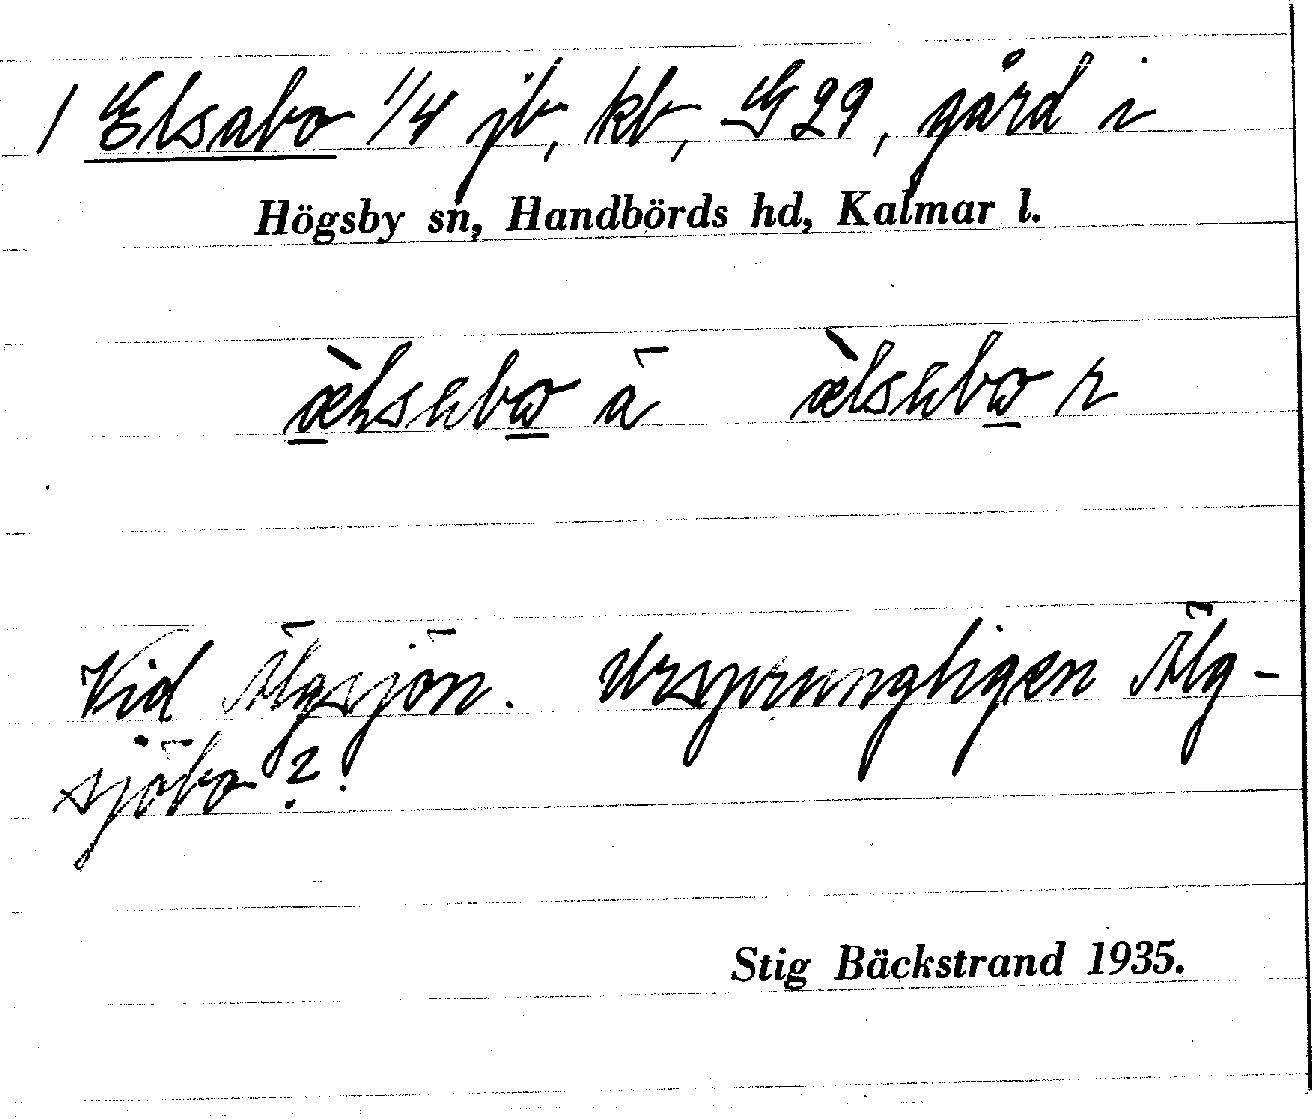 1 Elsabo 1/4 jb, kb, G 29, gård i
Högsby sn, Handbörds hd, Kalmar l.
Vid Älgsjön. Ursprungligen Älg-
sjöbo?
Stig Bäckstrand 1935.